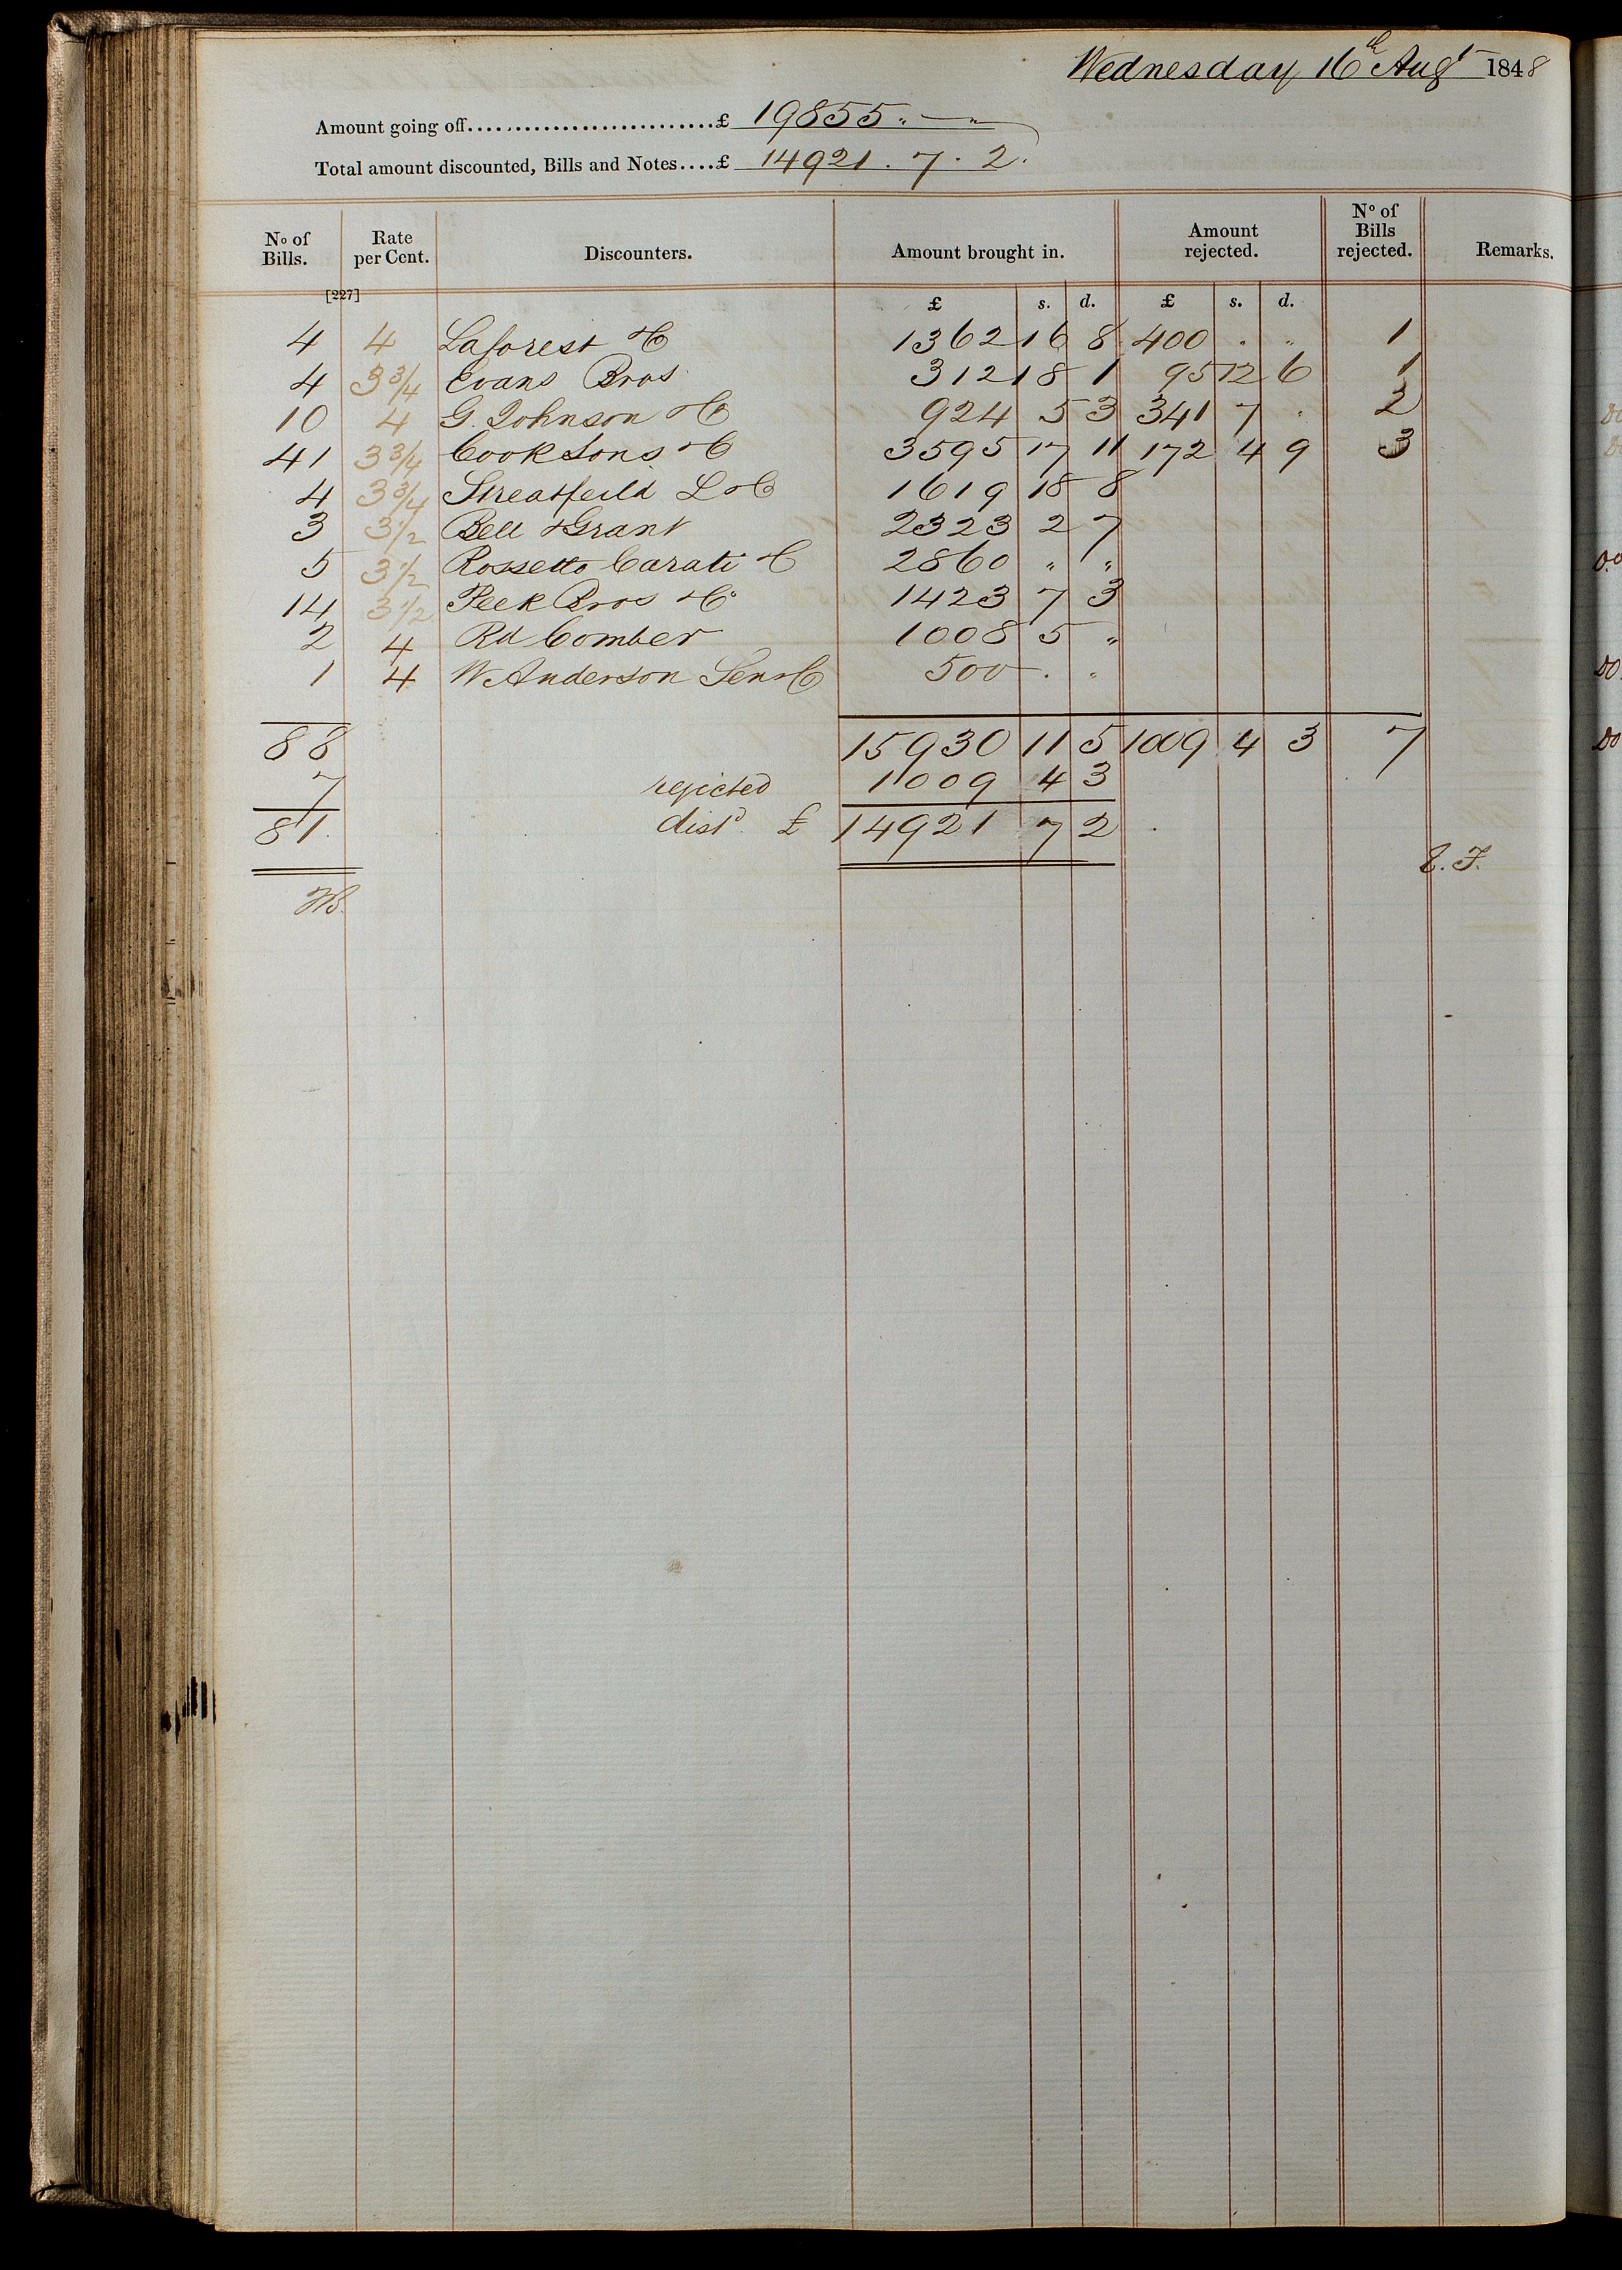 Wednesday 16th Augt 1848
Amount going off..........................£ 19855 . — "
Total amount discounted, Bills and Notes....£ 14921 . 7 . 2 .
No of Bills. Rate per Cent. Discounters. Amount brought in. Amount rejected. No of Bills rejected. Remarks.
[227] £ s. d. £ s. d.
4 4 Laforest &C 1362 16 8 400 . " 1
4 3 3/4 Evans Bros 312 18 1 95 12 6 1
10 4 G. Johnson &C 924 5 3 341 7 . 2
41 3 3/4 Cook Sons &C 3595 17 11 172 4 9 3
4 3 3/4 Streatfeild L &C 1619 18 8
3 3 1/2 Bell & Grant 2323 2 7
5 3 1/2 Rossetto Carati &C 2860 " "
14 3 1/2 Peek Bros &C 1423 7 3
2 4 Rd Comber 1008 5 "
1 4 W Anderson Sen &C 500 . "
88 15930 11 5 1009 4 3 7
7 rejected 1009 4 3
81. dist'd £ 14921 7 2